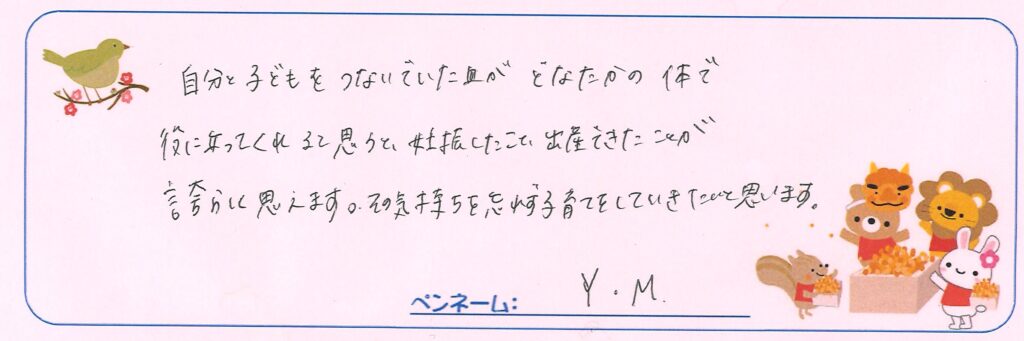 自分と子どもをつないでいた血が どなたかの 体で
役に立ってくれると思うと、妊娠したこと、出産できたことが
誇らしく思えます。その気持ちを忘れず子育てをしていきたいと思います。
ペンネーム: Y.M.